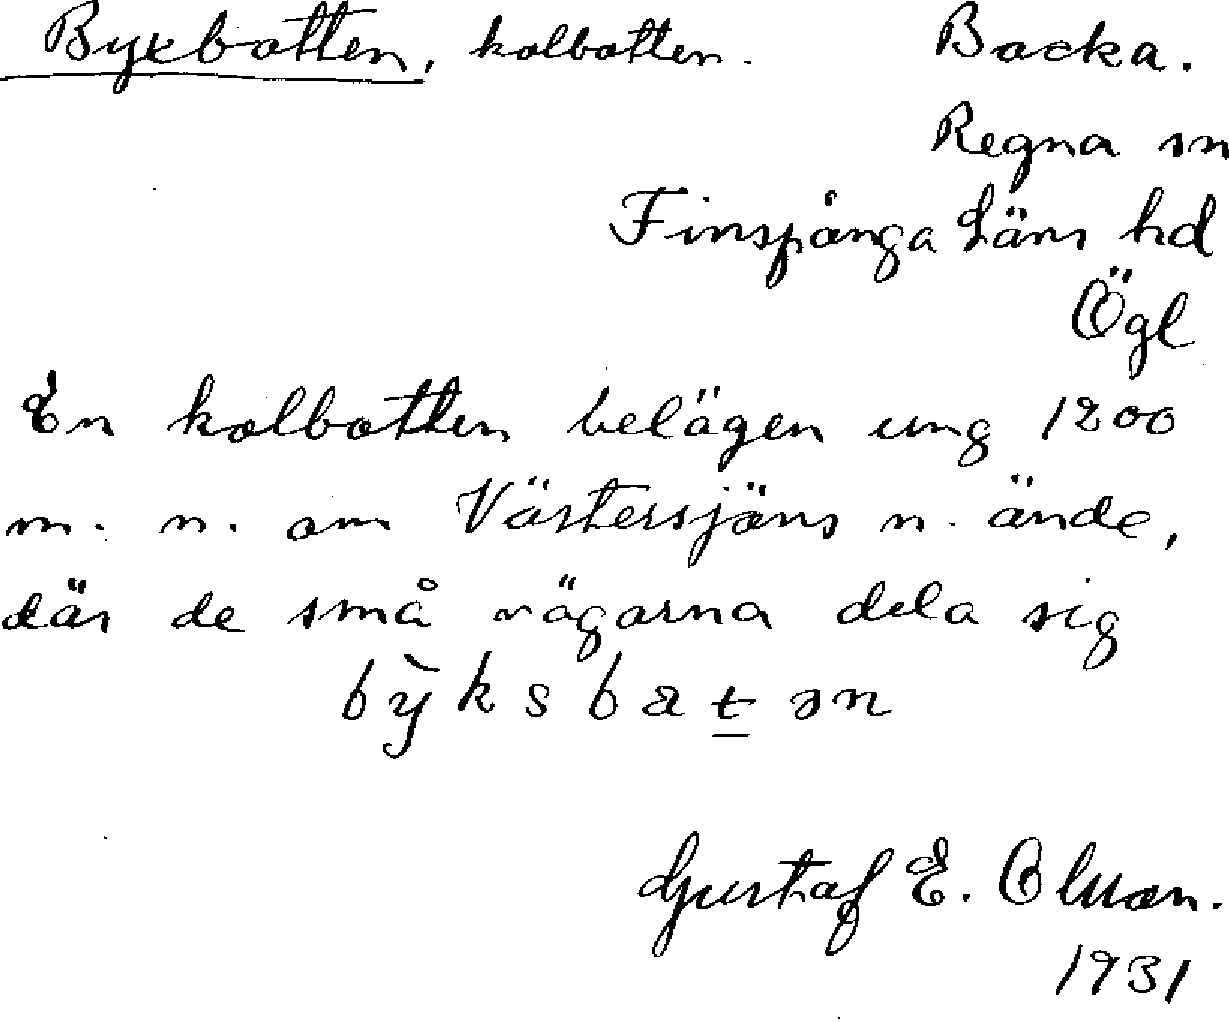 Byxbotten, kolbotten. Backa.
Regna sn
Finspånga Läns hd
Ögl
En kolbotten belägen ung 1200
m. n. om Västersjöns n. ände,
där de små vägarna dela sig
bỳksbatən
Gustaf E. Olsson.
1931